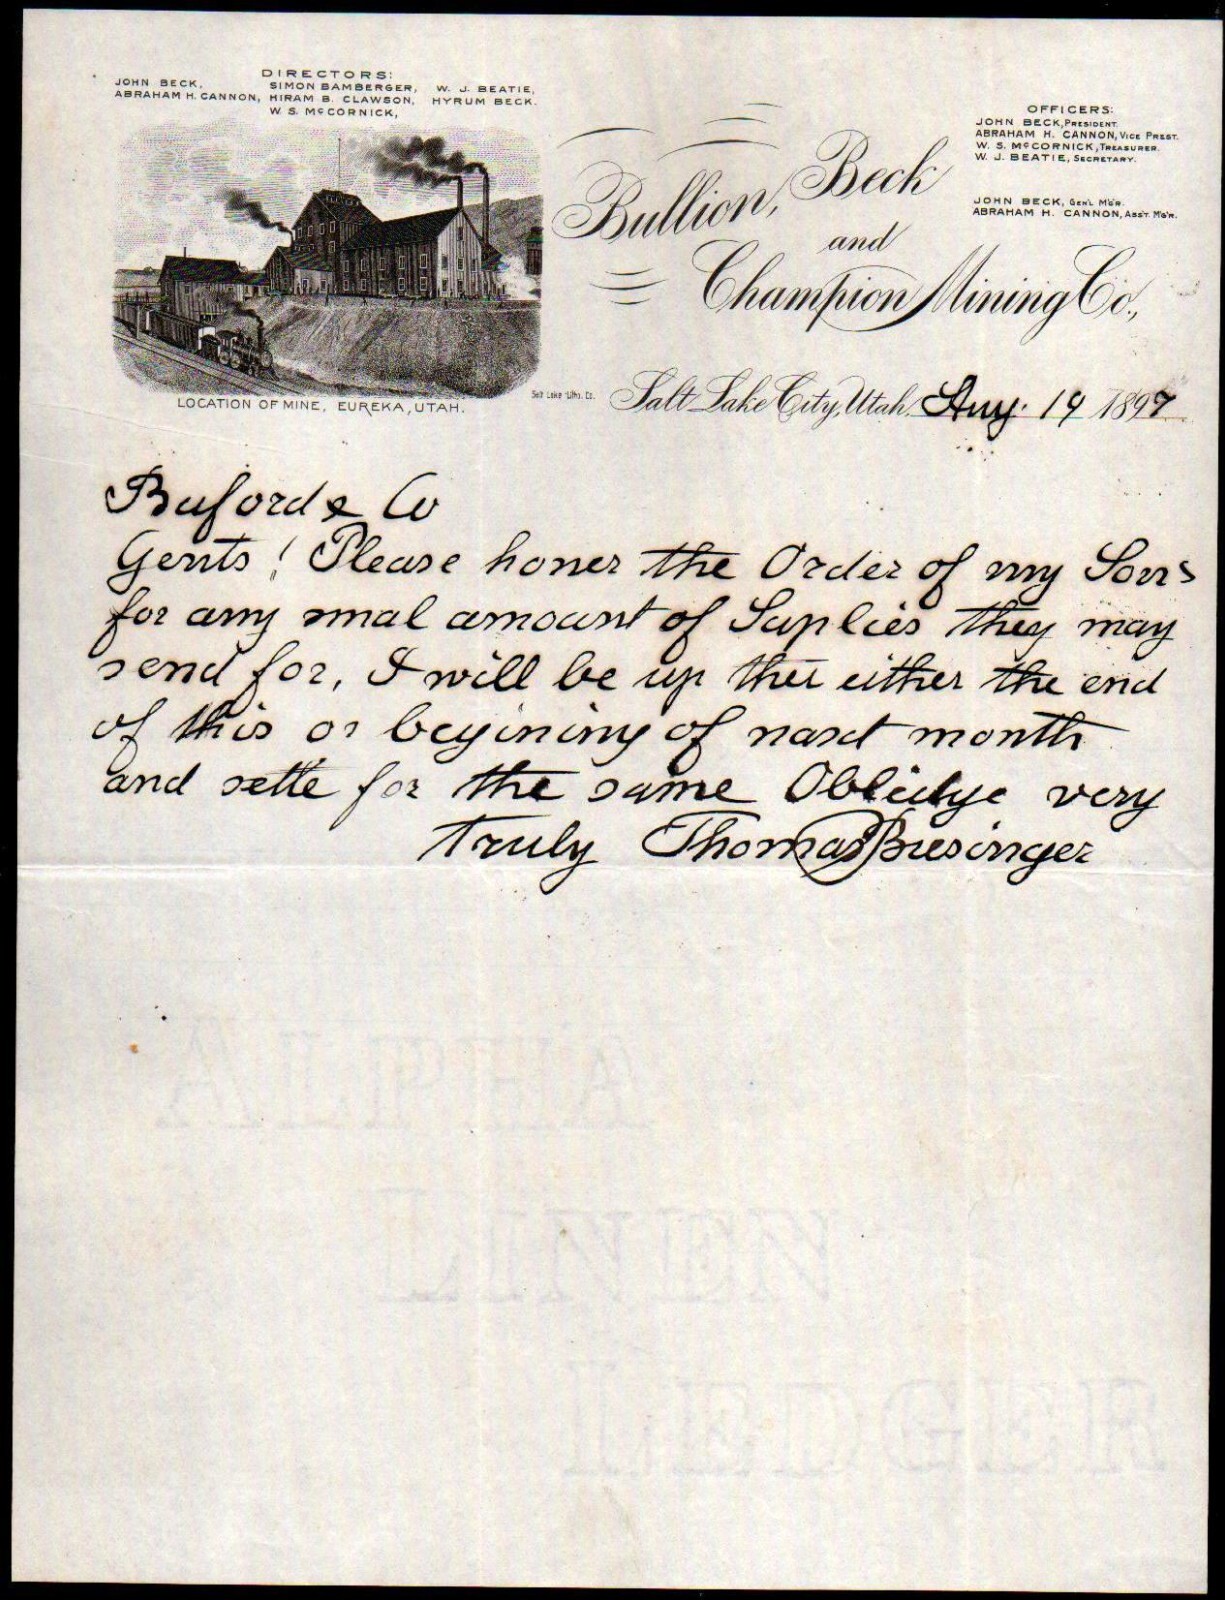 DIRECTORS:
JOHN BECK, SIMON BAMBERGER, W. J. BEATIE,
ABRAHAM H. CANNON, HIRAM B. CLAWSON, HYRUM BECK.
W. S. McCORNICK,
OFFICERS:
JOHN BECK, PRESIDENT.
ABRAHAM H. CANNON, VICE PREST.
W. S. McCORNICK, TREASURER.
W. J. BEATIE, SECRETARY.
JOHN BECK, GEN'L M'G'R.
ABRAHAM H. CANNON, ASS'T. M'G'R.
Bullion, Beck
and
Champion Mining Co.,
LOCATION OF MINE, EUREKA, UTAH.
Salt Lake Litho. Co.
Salt Lake City, Utah, Aug. 19 1897
Buford & Co
Gents! Please honer the Order of my Sons
for any smal amount of Suplies they may
send for, I will be up ther either the end
of this or begining of naxt month
and settle for the same Oblidge very
truly Thomas Biesinger
ALPHA
LINEN
LEDGER